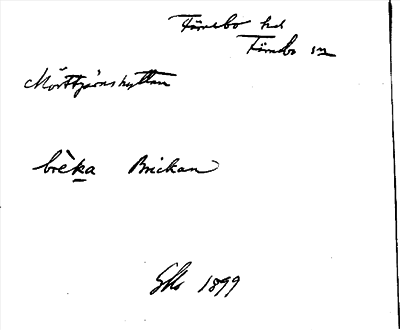 Färnebo hd
Färnebo sn
Mörttjärnshyttan
brèka Brickan
GKs 1899